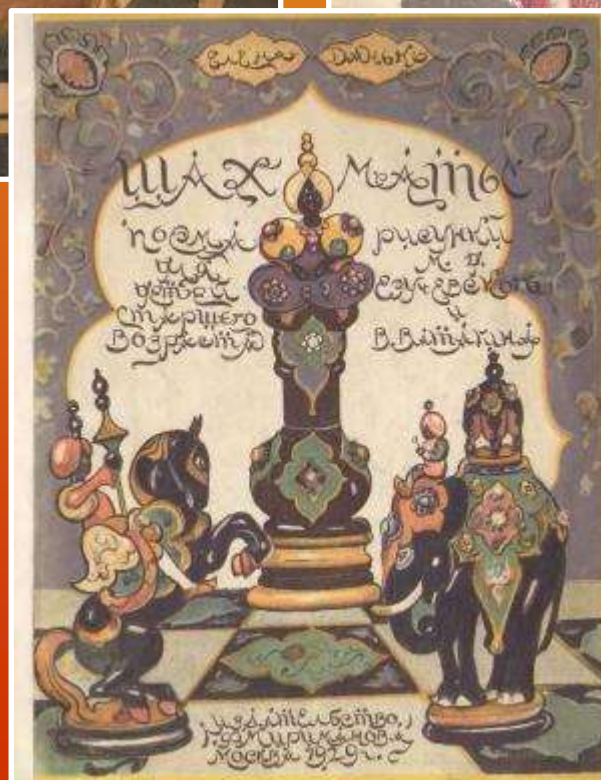 Елена Данько
ШАХМАТЫ
поэма
для
детей
старшего
возраста
рисунки
М. Д.
Езучевского
и
В. Ватагина
издательство
Г.Ф. Мириманова
Москва 1929 г.